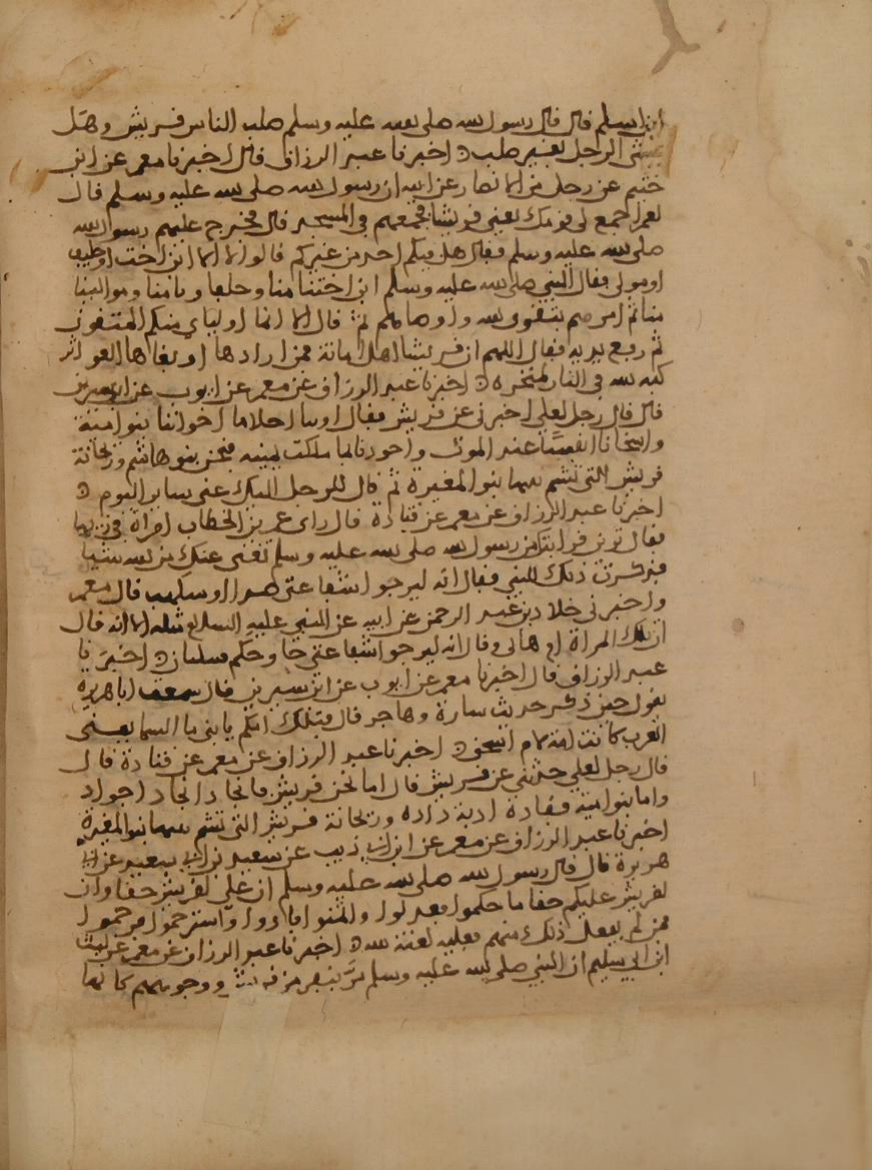 ابن اسلم قال قال رسول الله صلى الله عليه وسلم صلب الناس قريش وهل
يمشي الرجل بغير صلب اخبرنا عبد الرزاق قال اخبرنا معمر عن ابن
خثيم عن رجل من الانصار عن ابيه ان رسول الله صلى الله عليه وسلم قال
لعمر اجمع لي قومك يعني قريشا فجمعهم في المسجد قال فخرج عليهم رسول الله
صلى الله عليه وسلم فقال هل فيكم احد من غيركم قالوا لا الا ابن اخت او حليف
او مولى فقال النبي صلى الله عليه وسلم ابن اختنا منا وحلفاونا منا وموالينا
منا ثم امرهم بتقوى الله واوصاهم ثم قال الا انما اوليائ منكم المتقون
ثم رفع يديه فقال اللهم ان قريشا اهل امانة فمن ارادها او بغاها العواثر
كبه الله في النار لمنخره اخبرنا عبد الرزاق عن معمر عن ايوب عن ابن سيرين
قال قال رجل لعلي اخبرني عن قريش فقال اوزننا احلاما اخواننا بنو امية
وانجدنا عند الموت واجودنا بما ملكت يمينه فنحن بنو هاشم وريحانة
قريش التي تشم بينها بنو المغيرة ثم قال للرجل اليك عني ساير اليوم
اخبرنا عبد الرزاق عن معمر عن قتادة قال راى عمر بن الخطاب امراة في زيها
فقال ترين قرابتك من رسول الله صلى الله عليه وسلم تغني عنك من الله شيا
فذكرت ذلك للنبي فقال انه ليرجوا شفاعتي صدا او سلهب قال معمر
واخبرني خلاد بن عبد الرحمن عن ابيه عن النبي عليه السلام مثله الا انه قال
ان تلك المراة ام هاني وقال انه ليرجوا شفاعتي حا وحكم قبيلتان اخبرنا
عبد الرزاق قال اخبرنا معمر عن ايوب عن ابن سيرين قال سمعت ابا هريرة
يقول حين ذكر حديث سارة وهاجر قال فتلك امكم يا بني ما السما يعني
العرب كانت امة لام اسحق اخبرنا عبد الرزاق عن معمر عن قتادة قال
قال رجل لعلي حدثني عن قريش قال اما نحن قريش فانجاد امجاد اجواد
واما بنو امية فقادة ادبة ذادة وريحانة قريش التي تشم بينها بنو المغيرة
اخبرنا عبد الرزاق عن معمر عن ابن ابي ذيب عن سعيد بن ابي سعيد عن ابي
هريرة قال قال رسول الله صلى الله عليه وسلم ان لي على قريش حقا وان
لقريش عليكم حقا ما حكموا فعدلوا وائتمنوا فادوا واسترحموا فرحموا
فمن لم يفعل ذلك منهم فعليه لعنة الله اخبرنا عبد الرزاق عن معمر عن ليث
ابن ابي سليم ان النبي صلى الله عليه وسلم مر بنفر من قريش ووجوههم كانها